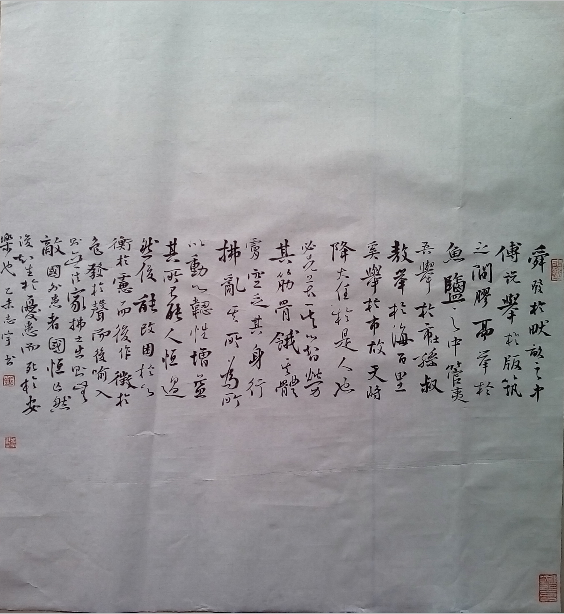 舜發於畎畝之中
傅說舉於版筑
之間膠鬲舉於
魚鹽之中管夷
吾舉於士孫叔
敖舉於海百里
奚舉於市故天將
降大任於是人也
必先苦其心智勞
其筋骨餓其體
膚空乏其身行
拂亂其所為所
以動心韌性增益
其所不能人恒過
然後能改困於心
衡於慮而後作徵於
色發於聲而後喻入
則無法家拂士出則無
敵國外患者國恒亡然
後知生於憂患而死於安
樂也乙未志宇書